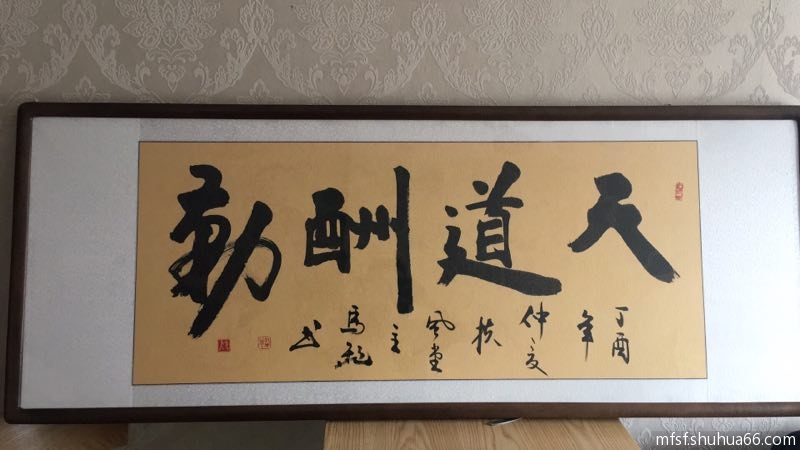 天道酬勤
丁酉年仲夏扶风堂主马龙书
mfsf.shuhua66.com